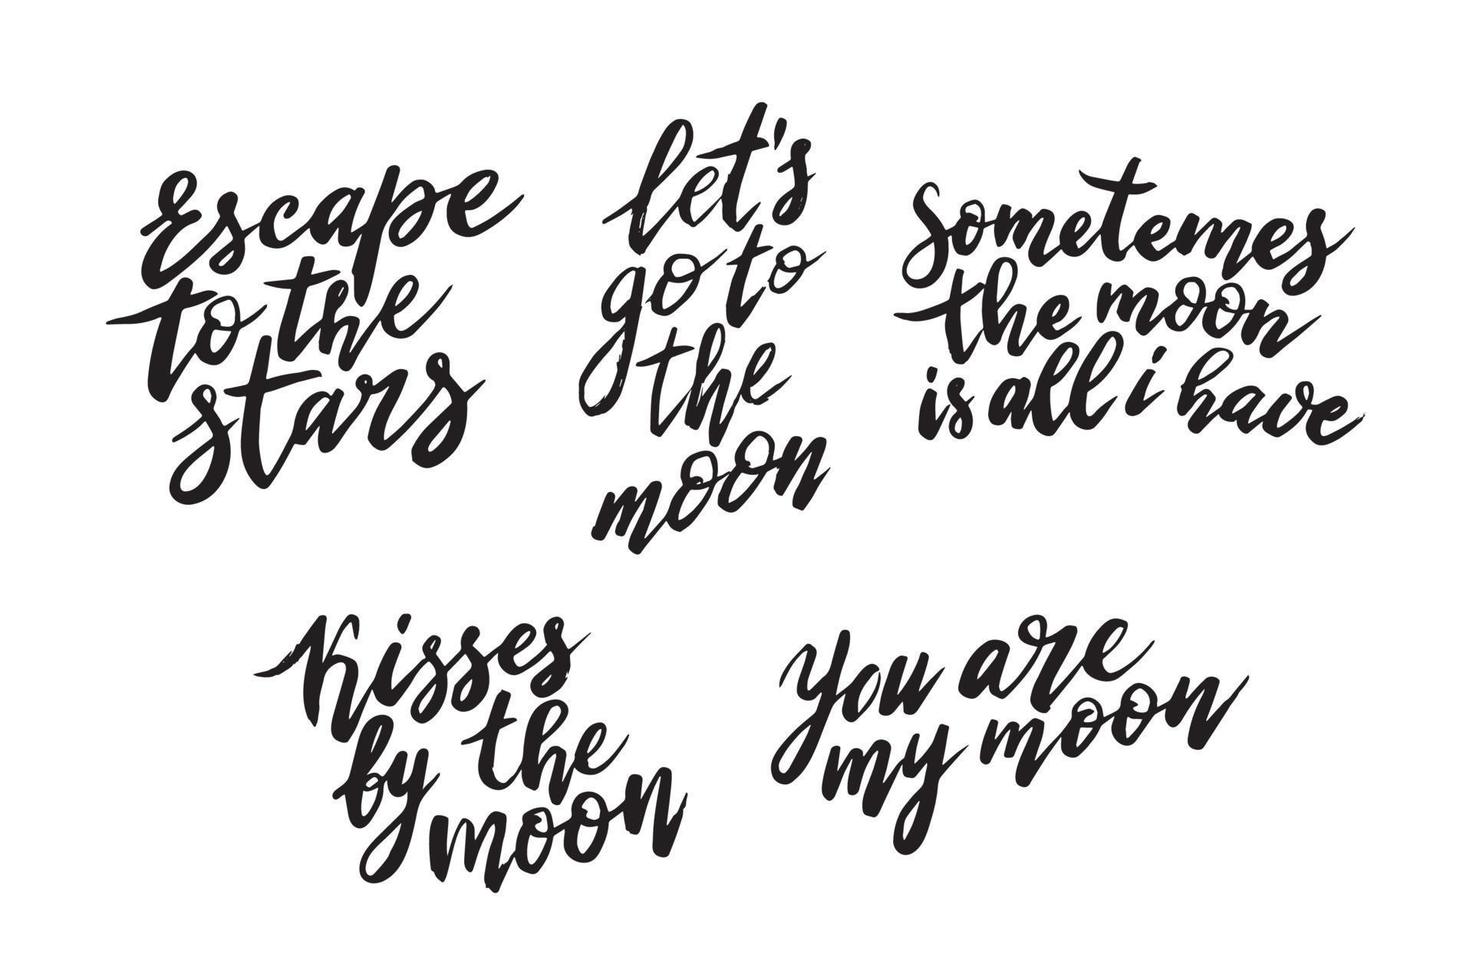 Escape
to the
stars
let's
go to
the
moon
Sometemes
the moon
is all i have
Kisses
by the
moon
You are
my moon